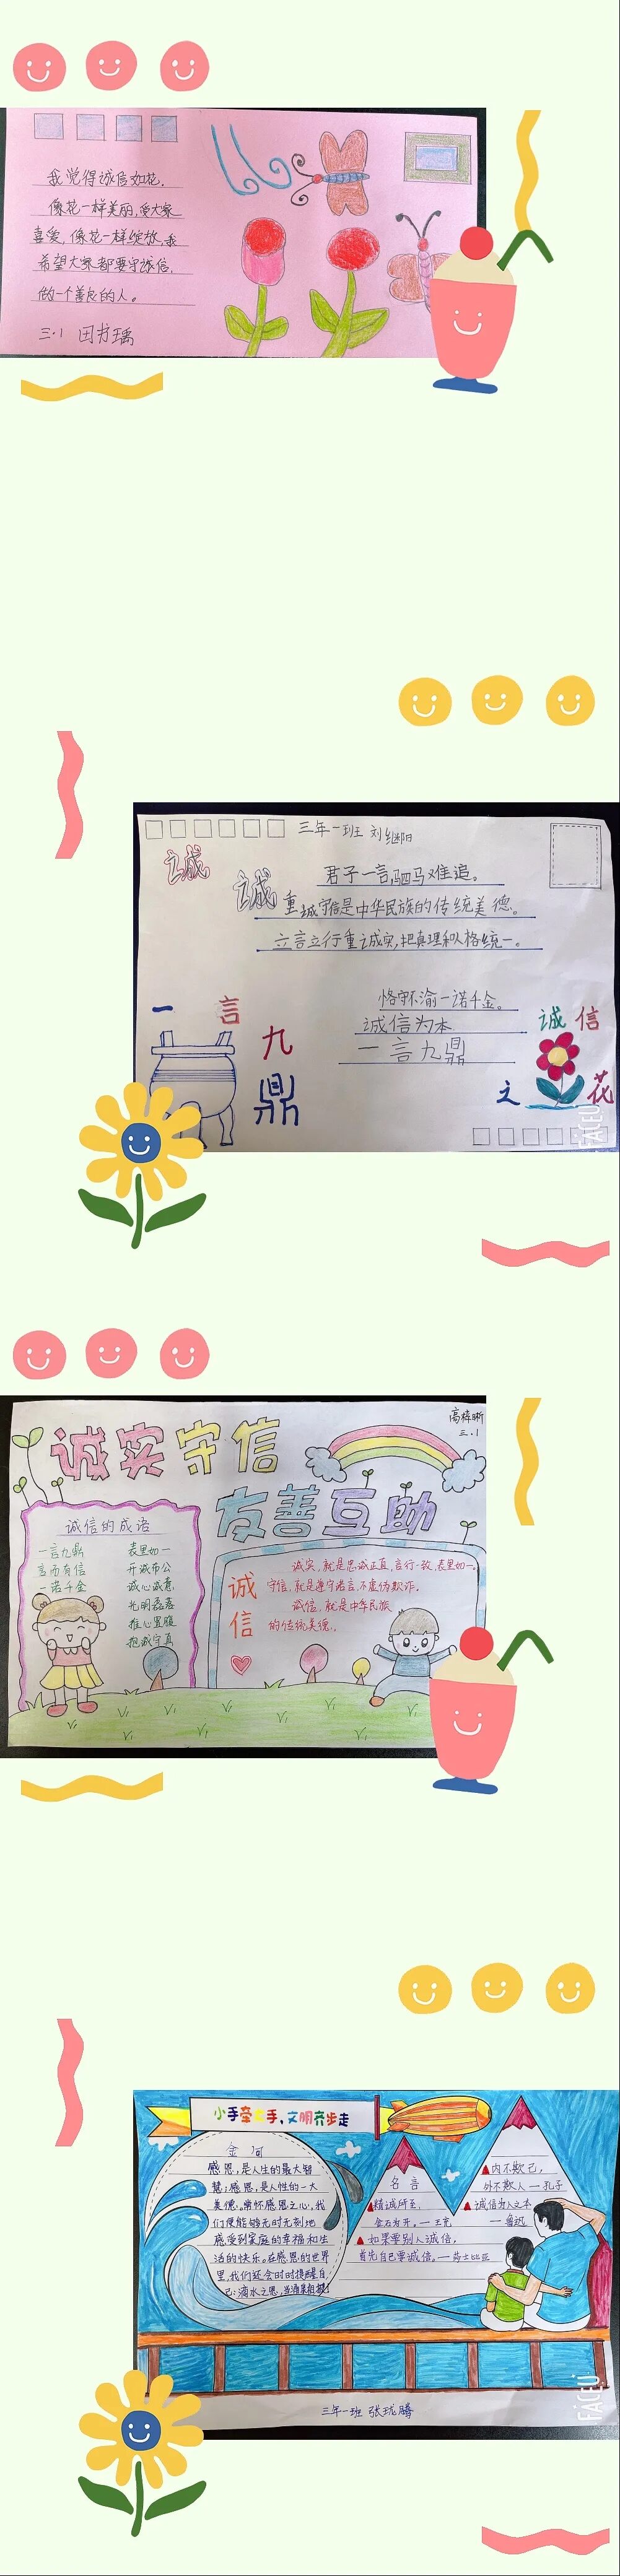 我觉得诚信如花,
像花一样美丽,受大家
喜爱,像花一样绽放,我
希望大家都要守诚信,
做一个善良的人。
三.1 田
三年一班 刘继阳
诚
诚
君子一言,驷马难追。
重诚守信是中华民族的传统美德。
立言立行重诚实,把真理和人格统一。
恪守不渝一诺千金。
诚信为本
一言九鼎
一言
九
鼎
诚信
之花
FACEU
高梓晰
三.1
诚实守信
友善互助
诚信的成语
一言九鼎 表里如一
言而有信 开诚布公
一诺千金 诚心诚意
光明磊落
推心置腹
抱诚守真
诚信
诚实,就是忠诚正直,言行一致,表里如一。
守信,就是遵守诺言,不虚伪欺诈。
诚信,就是中华民族
的传统美德。
小手牵大手,文明齐步走
金句
感恩,是人生的最大智
慧;感恩,是人性的一大
美德。常怀感恩之心,我
们便能够无时无刻地
感受到家庭的幸福和生
活的快乐。在感恩的世界
里,我们还会时时提醒自
己:滴水之恩,当涌泉相报!
名言
精诚所至,
金石为开。—王充
如果要别人诚信,
首先自己要诚信。—莎士比亚
内不欺己,
外不欺人—孔子
诚信为人之本
—鲁迅
三年一班 张珑腾
FACEU